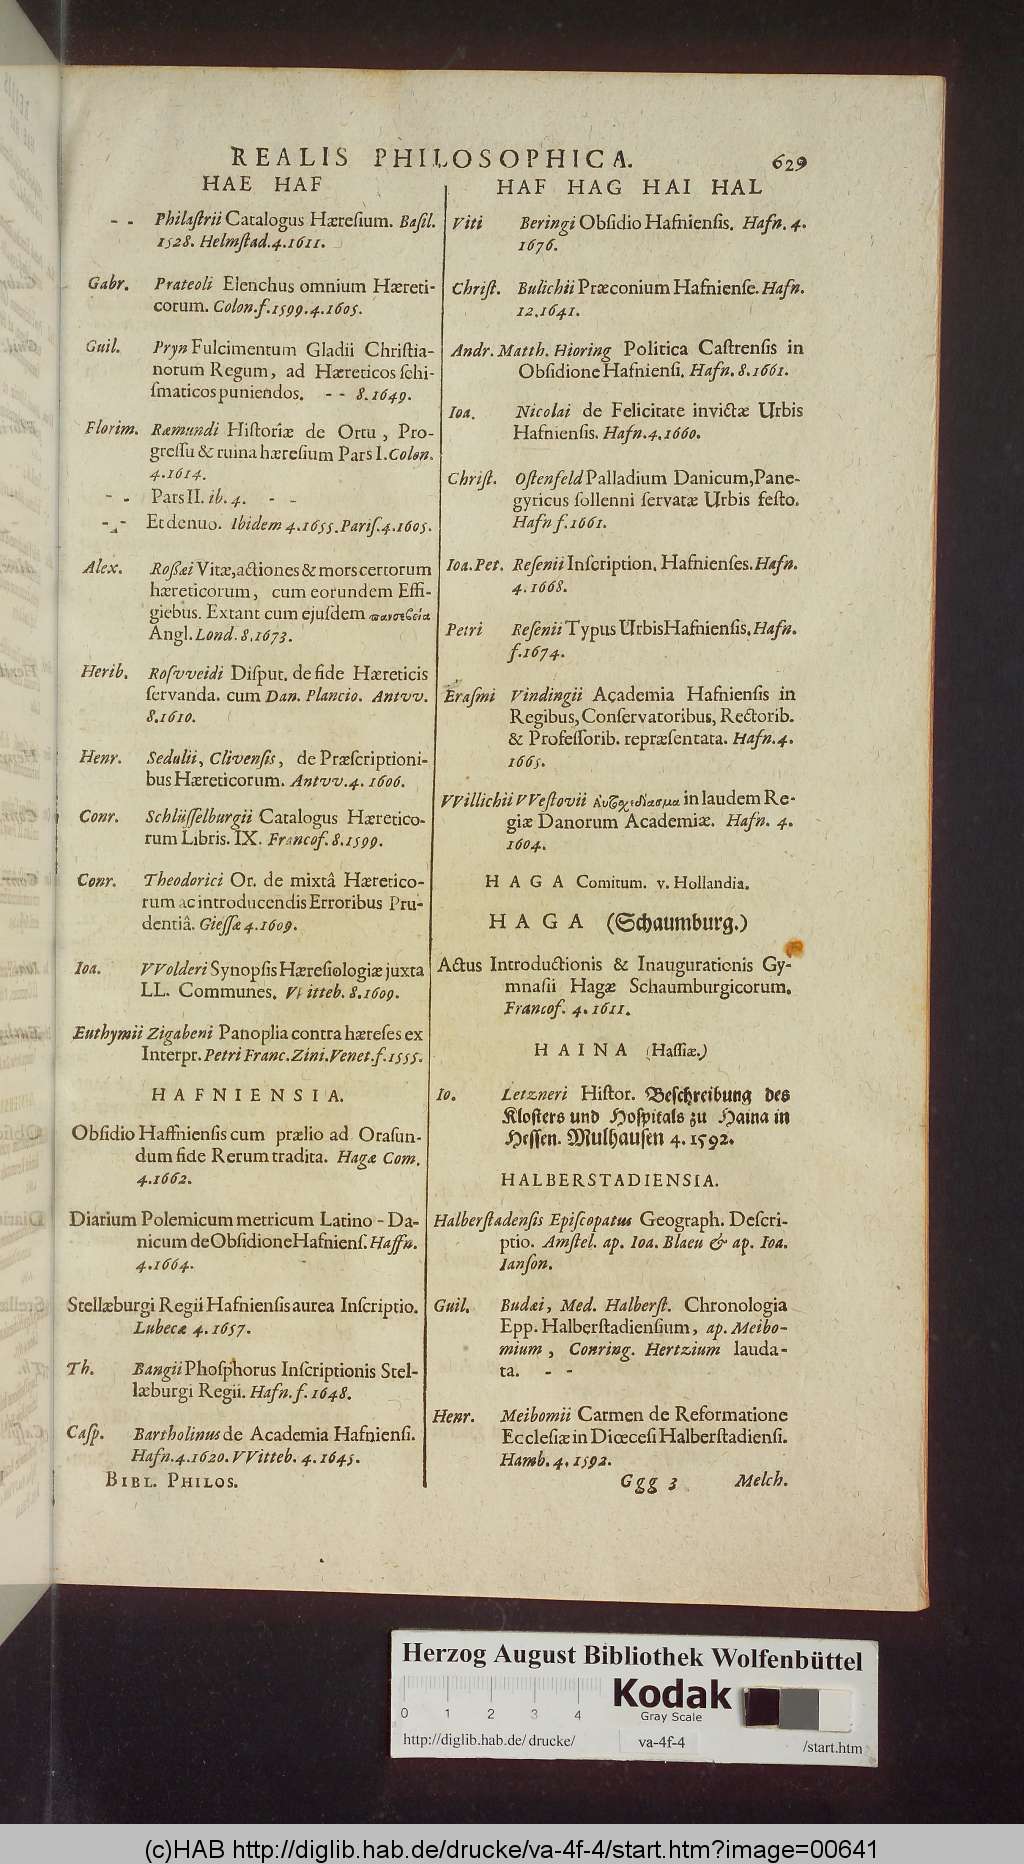 REALIS PHILOSOPHICA. 629
HAE HAF
- - Philaſtrii Catalogus Hæreſium. Baſil.
1528. Helmſtad. 4. 1611.
Gabr. Prateoli Elenchus omnium Hæreti-
corum. Colon. f. 1599. 4. 1605.
Guil. Pryn Fulcimentum Gladii Chriſtia-
norum Regum, ad Hæreticos ſchi-
ſmaticos puniendos. - - 8. 1649.
Florim. Ræmundi Hiſtoriæ de Ortu, Pro-
greſſu & ruina hæreſium Pars I. Colon.
4. 1614.
- - Pars II. ib. 4. - -
- - Et denuo. Ibidem 4. 1655. Pariſ. 4. 1605.
Alex. Roßæi Vitæ, actiones & mors certorum
hæreticorum, cum eorundem Effi-
giebus. Extant cum ejuſdem πανσεβεία
Angl. Lond. 8. 1673.
Herib. Roſvveidi Diſput. de fide Hæreticis
ſervanda. cum Dan. Plancio. Antvv.
8. 1610.
Henr. Sedulii, Clivenſis, de Præſcriptioni-
bus Hæreticorum. Antvv. 4. 1606.
Conr. Schlüſſelburgii Catalogus Hæretico-
rum Libris. IX. Francof. 8. 1599.
Conr. Theodorici Or. de mixtâ Hæretico-
rum ac introducendis Erroribus Pru-
dentiâ. Gieſſæ 4. 1609.
Ioa. VVolderi Synopſis Hæreſiologiæ juxta
LL. Communes. Witteb. 8. 1609.
Euthymii Zigabeni Panoplia contra hæreſes ex
Interpr. Petri Franc. Zini. Venet. f. 1555.
HAFNIENSIA.
Obſidio Haffnienſis cum prælio ad Oraſun-
dum fide Rerum tradita. Hagæ Com.
4. 1662.
Diarium Polemicum metricum Latino-Da-
nicum de Obſidione Hafnienſ. Haffn.
4. 1664.
Stellæburgi Regii Hafnienſis aurea Inſcriptio.
Lubecæ 4. 1657.
Th. Bangii Phoſphorus Inſcriptionis Stel-
læburgi Regii. Hafn. f. 1648.
Caſp. Bartholinus de Academia Hafnienſi.
Hafn. 4. 1620. VVitteb. 4. 1645.
BIBL. PHILOS.
HAF HAG HAI HAL
Viti Beringi Obſidio Hafnienſis. Hafn. 4.
1676.
Chriſt. Bulichii Præconium Hafnienſe. Hafn.
12. 1641.
Andr. Matth. Hioring Politica Caſtrenſis in
Obſidione Hafnienſi. Hafn. 8. 1661.
Ioa. Nicolai de Felicitate invictæ Urbis
Hafnienſis. Hafn. 4. 1660.
Chriſt. Oſtenfeld Palladium Danicum, Pane-
gyricus ſollenni ſervatæ Urbis feſto.
Hafn f. 1661.
Ioa. Pet. Reſenii Inſcription. Hafnienſes. Hafn.
4. 1668.
Petri Reſenii Typus Urbis Hafnienſis. Hafn.
f. 1674.
Eraſmi Vindingii Academia Hafnienſis in
Regibus, Conſervatoribus, Rectorib.
& Profeſſorib. repræſentata. Hafn. 4.
1665.
VVillichii VVeſtovii Αυτοχεδίασμα in laudem Re-
giæ Danorum Academiæ. Hafn. 4.
1604.
HAGA Comitum. v. Hollandia.
HAGA (Schaumburg.)
Actus Introductionis & Inaugurationis Gy-
mnaſii Hagæ Schaumburgicorum.
Francof. 4. 1611.
HAINA (Haſſiæ.)
Io. Letzneri Hiſtor. Beſchreibung des
Kloſters und Hoſpitals zu Haina in
Heſſen. Mulhauſen 4. 1592.
HALBERSTADIENSIA.
Halberſtadenſis Epiſcopatus Geograph. Deſcri-
ptio. Amſtel. ap. Ioa. Blaeu & ap. Ioa.
Ianſon.
Guil. Budæi, Med. Halberſt. Chronologia
Epp. Halberſtadienſium, ap. Meibo-
mium, Conring. Hertzium lauda-
ta. - -
Henr. Meibomii Carmen de Reformatione
Eccleſiæ in Diœceſi Halberſtadienſi.
Hamb. 4. 1592.
Ggg 3 Melch.
Herzog August Bibliothek Wolfenbüttel
Kodak
Gray Scale
0 1 2 3 4
http://diglib.hab.de/drucke/ va-4f-4 /start.htm
(c)HAB http://diglib.hab.de/drucke/va-4f-4/start.htm?image=00641